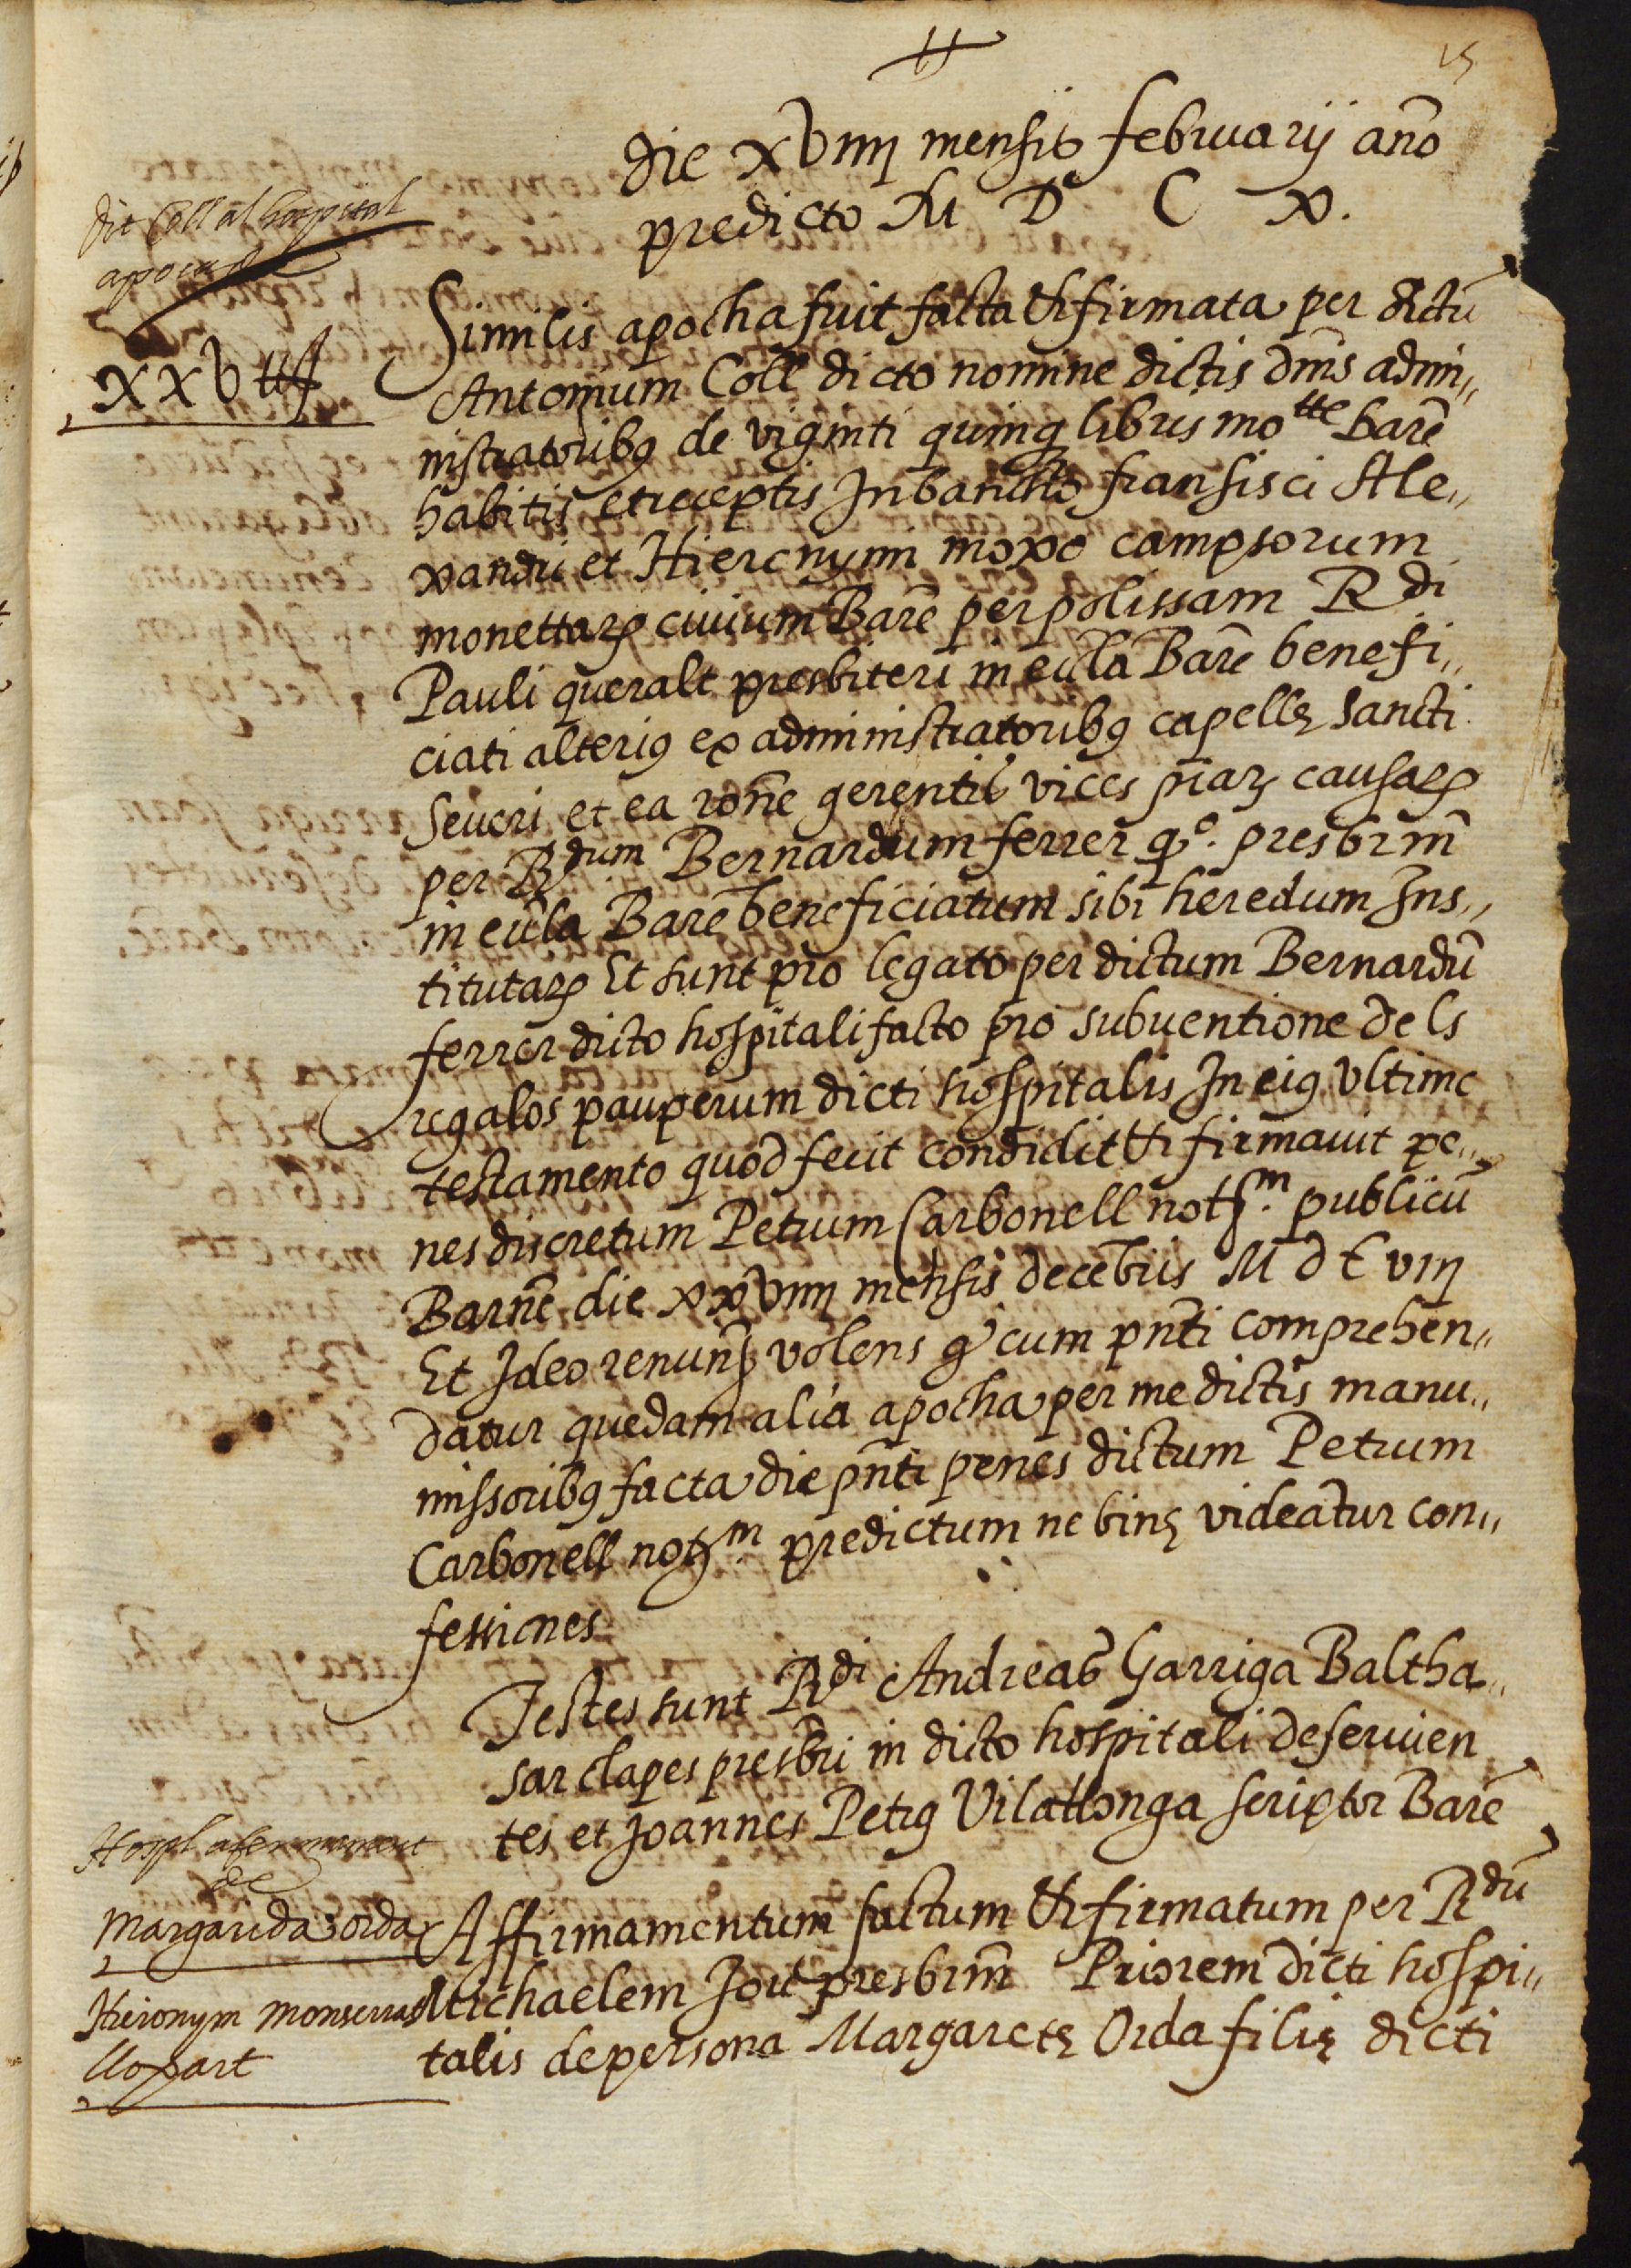 15
die xviiij mensis februarij año
predicto M D C x.
dit Coll al hospital
apoca
xxv tt ſ
Similis apocha fuit facta et firmata per dictũ
Antonium Coll dicto nomine dictis dñis admi„
nistratoribꝰ de viginti quinqꝫ libris mo^tte Barẽ
habitis et receptis In bancho fransisci Ale„
xandri et Hieronymi moxo campsorum
monettaꝝ civium Barẽ per polissam R^di
Pauli queralt presbiteri in eccĩa Barẽ benefi„
ciati alteriꝰ ex administratoribꝰ capellę sancti
Seueri et ea rõne gerentis vices piaꝝ causaꝝ
per R^dum Bernardum ferrer qº. presbrm̃
in eccĩa Barẽ beneficiatum sibi heredum Ins„
titutaꝝ Et sunt pro legato per dictum Bernardũ
ferrer dicto hospitali facto pro subuentione dels
regalos pauperum dicti hospitalis In eiꝰ vltimo
testamento quod fecit condidit et firmauit pe„
nes discretum Petrum Carbonell notꝫ^m. publicũ
Barñe die xxviiij mensis decẽbris M d C viiij
Et Ideo renunꝫ volens qͥ cum pñti comprehen„
datur quedam alia apocha per me dictis manu„
missoribꝰ facta die pñti penes dictum Petrum
Carbonell notꝫ^m predictum ne binę videatur con„
fessiones
Testes sunt R^di Andreas Garriga Baltha„
sar clapes presbri in dicto hospitali deseruien
tes et Joannes Petrꝰ Vilallonga scriptor Barẽ
Hospl afermament
de
Margarida orda
Hieronym Monserrat
llopart
Affirmamentum factum et firmatum per R^dũ
Michaelem Jorẽ presbrm̃ Priorem dicti hospi„
talis de persona Margaretę Orda filię dicti